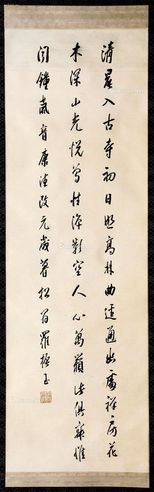 清晨入古寺初日照高林曲逕通幽處禪房花
木深山光悅鳥性潭影空人心萬籟此俱寂惟
聞鐘磬音康德改元歲暮松翁羅振玉